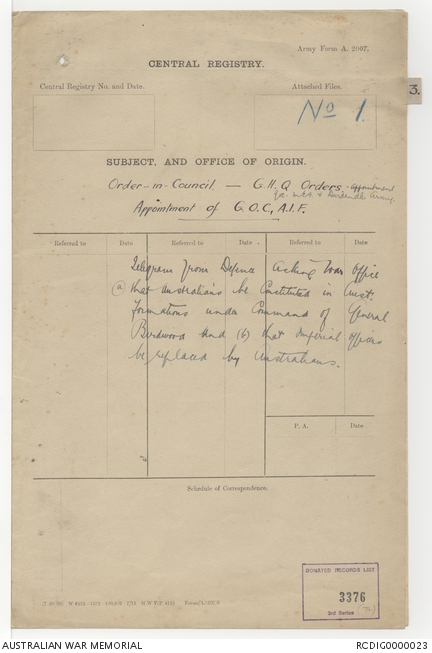 Army Form A. 2007.
CENTRAL REGISTRY.
Central Registry No. and Date.
Attached Files.
No 1.
3.
SUBJECT, AND OFFICE OF ORIGIN.
Order-in-Council — G.H.Q Orders - appointment
Appointment of G.O.C, A.I.F.
Referred to Date Referred to Date Referred to Date
Telegram from Defence asking War Office
(a) that Australians be Constituted in Aust.
Formations under Command of General
Birdwood and (b) that Imperial officers
be replaced by Australians.
P. A. Date
Schedule of Correspondence.
DONATED RECORDS LIST
3376
3rd Series
AUSTRALIAN WAR MEMORIAL
RCDIG0000023